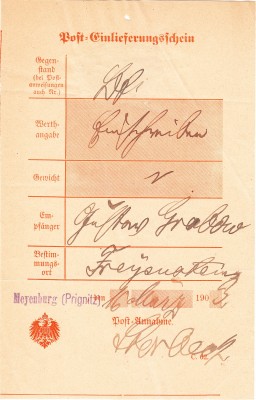 Post-Einlieferungsschein
Gegen-
stand
(bei Post-
anweisungen
auch Nr.)
Werth-
angabe
Einschreiben
Gewicht
Em-
pfänger
Gustav Grabow
Bestim-
mungs-
ort
Meyenburg (Prignitz)
den
1903
Post-Annahme.